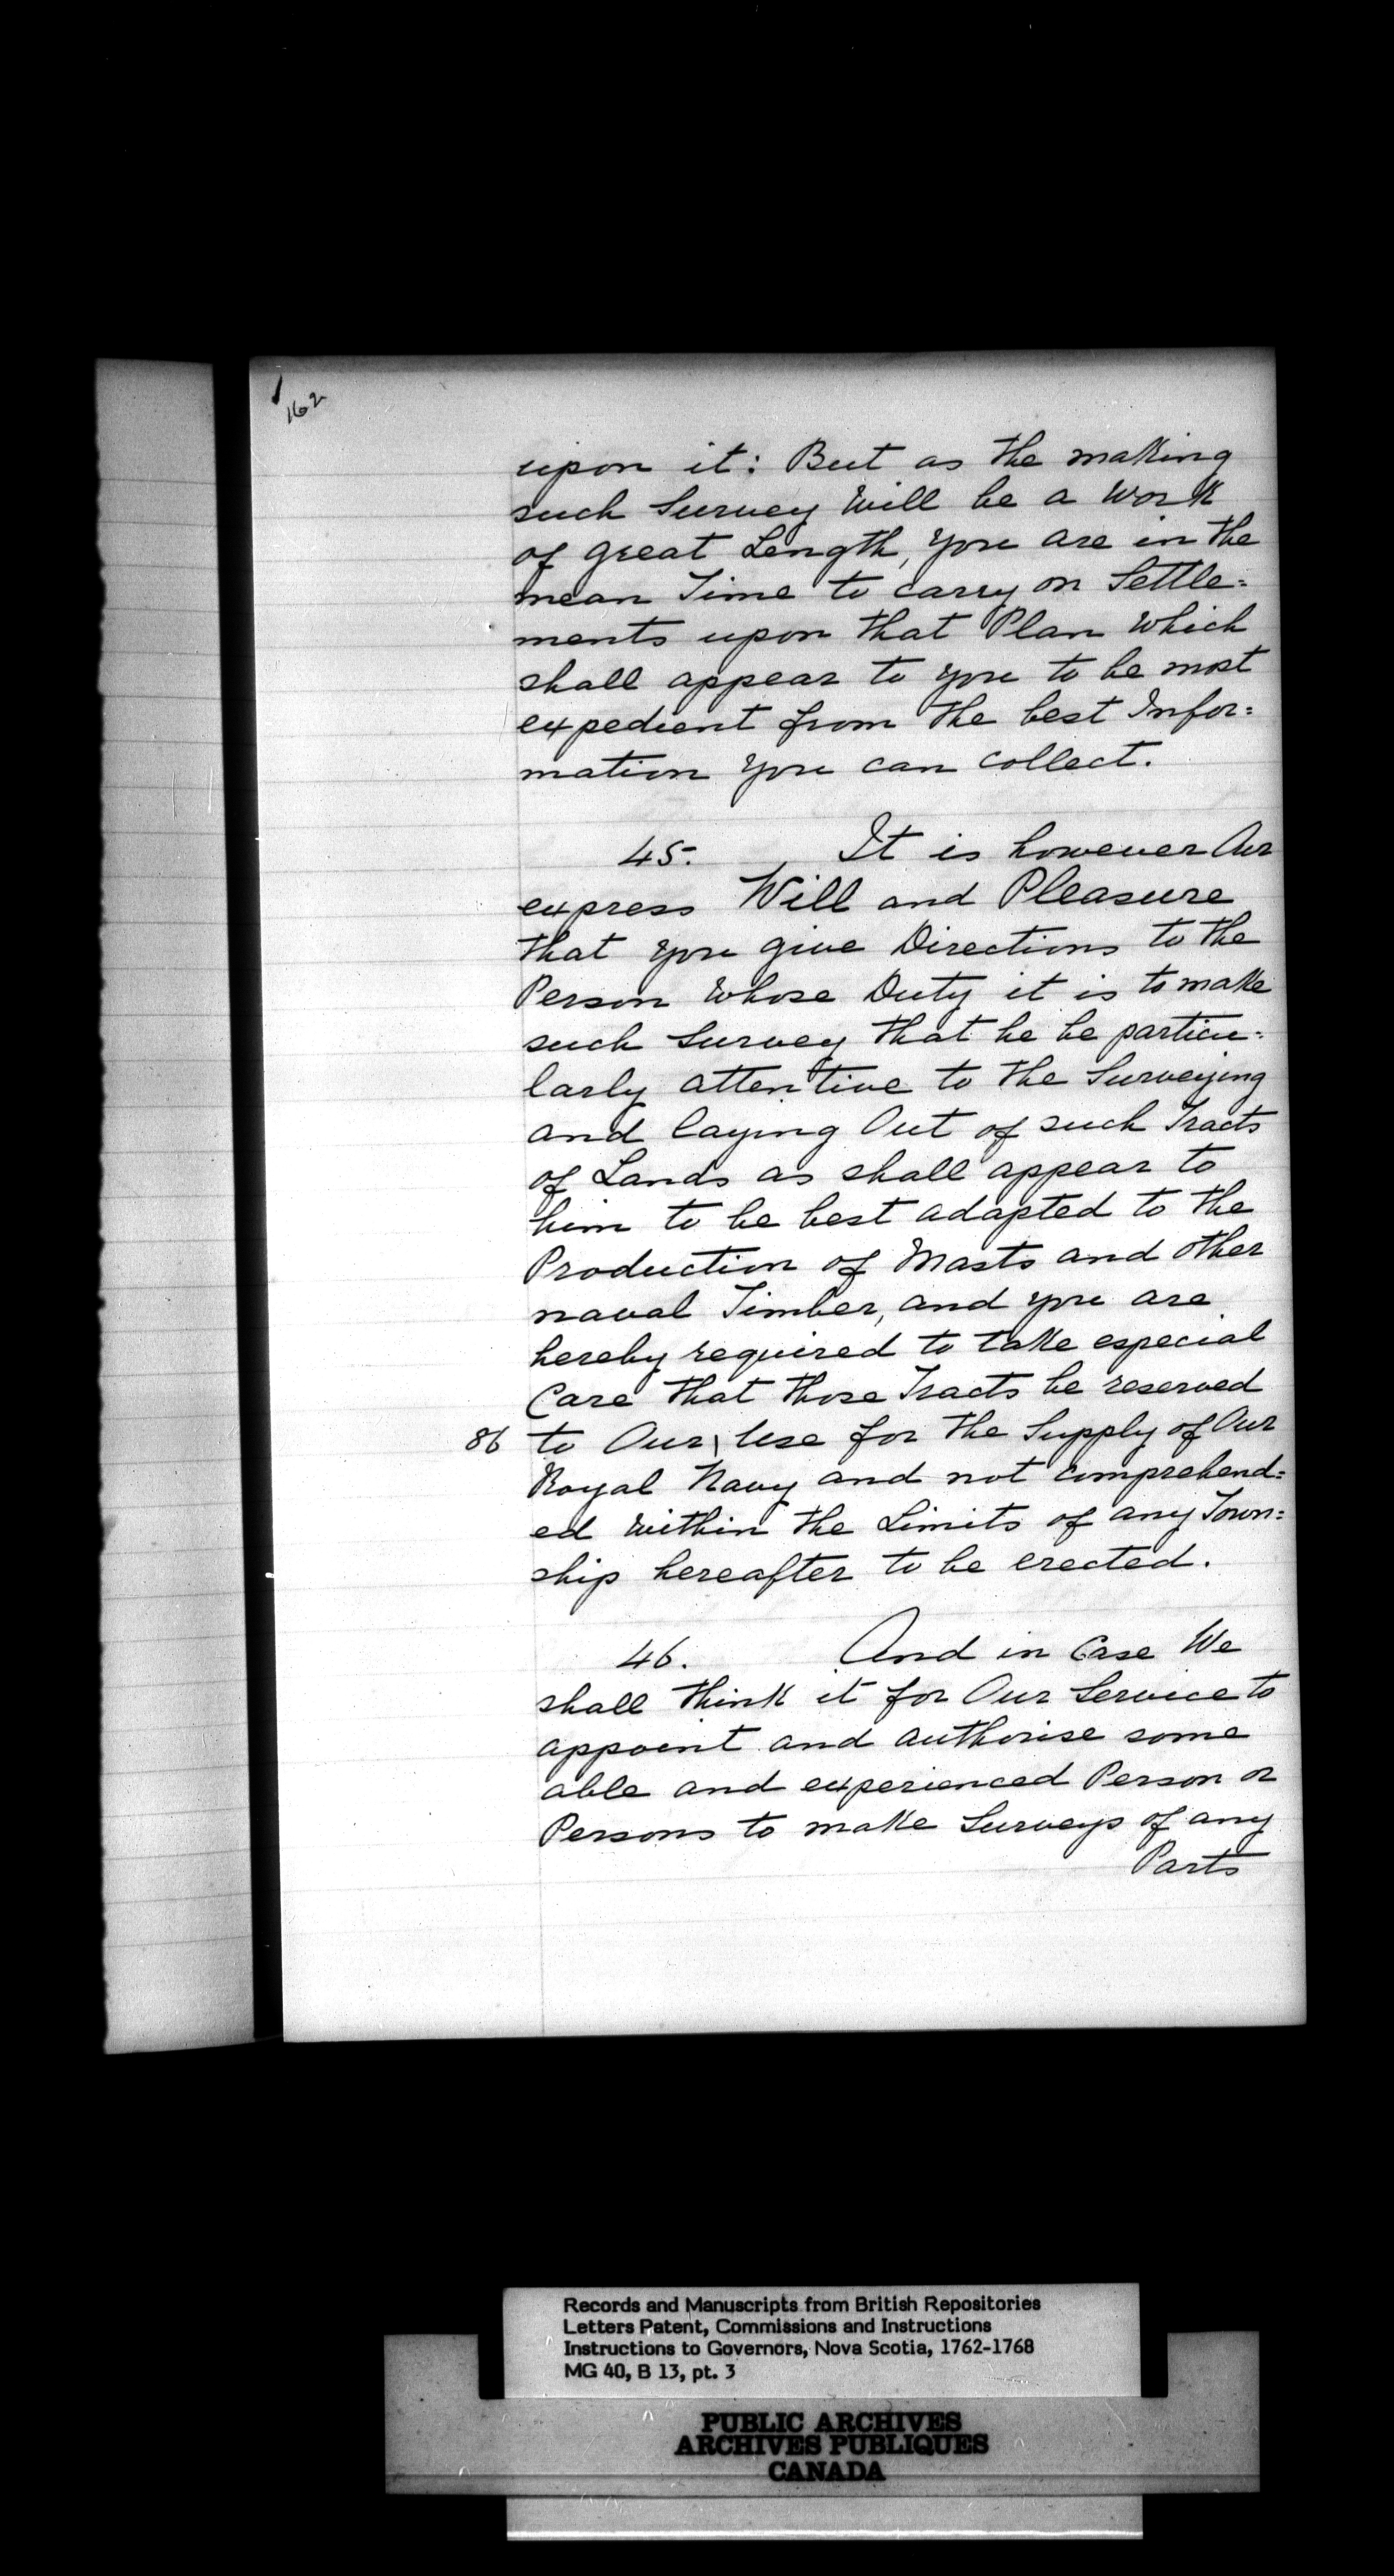 162
upon it: But as the making
such Survey Will be a Work
of great Length, you are in the
mean Time to carry on Settle=
ments upon that Plan Which
shall appear to you to be most
expedient from the best Infor=
mation you can collect.
45. It is however Our
express Will and Pleasure
that you give Directions to the
Person Whose Duty it is to make
such Survey that he be particu=
larly attentive to the Surveying
and laying Out of such Tracts
of Lands as shall appear to
him to be best adapted to the
Production of Masts and other
naval Timber, and you are
hereby required to take especial
Care that those Tracts be reserved
86 to Our \ Use for the Supply of Our
Royal Navy and not comprehend=
ed within the Limits of any Town=
ship hereafter to be erected.
46. And in Case We
shall think it for Our Service to
appoint and authorise some
able and experienced Person or
Persons to make Surveys of any
Parts
Records and Manuscripts from British Repositories
Letters Patent, Commissions and Instructions
Instructions to Governors, Nova Scotia, 1762-1768
MG 40, B 13, pt. 3
PUBLIC ARCHIVES
ARCHIVES PUBLIQUES
CANADA